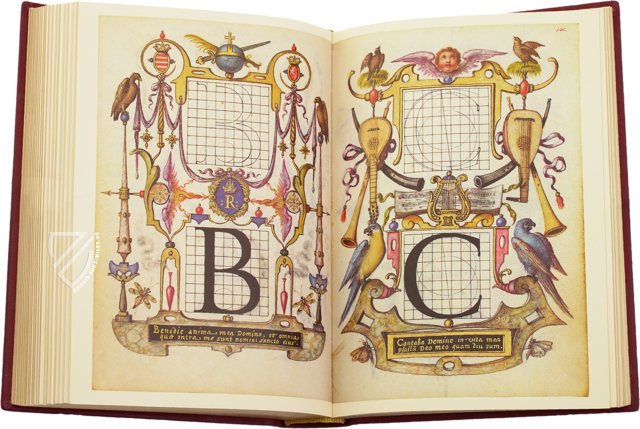 B
R
B
Benedic anima mea Domino, et omnia
quæ intra me sunt nomini sancto eius.
C
C
Cantabo Domino in vita mea
psallā Deo meo quam diu sum.